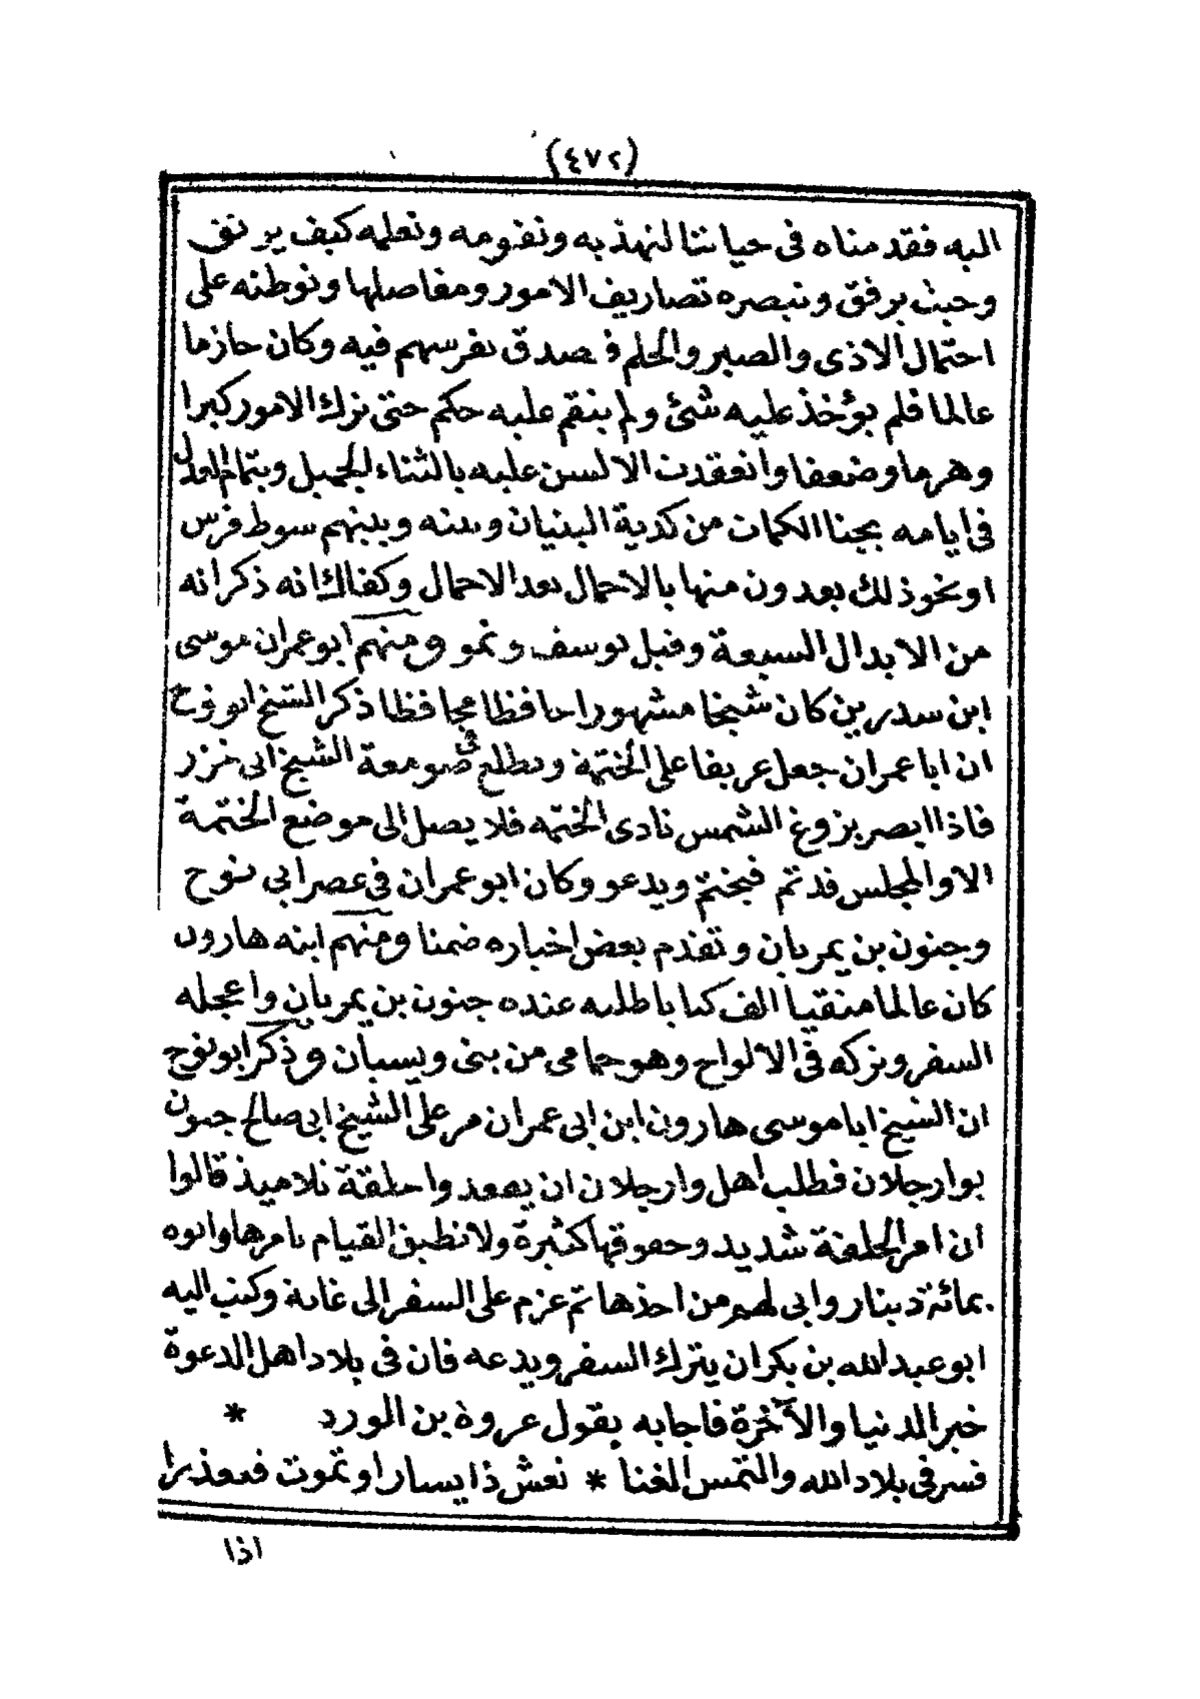 (٤٧٢)
اليه فقدمناه فى حياتنا لنهذبه ونقومه ونعلمه كيف يرتفق
وحيث يرفق ونبصره تصاريف الامور ومفاصلها ونوطنه على
احتمال الاذى والصبر والحلم فصدق تفرسهم فيه وكان حازما
عالما فلم يؤخذ عليه شئ ولم ينقم عليه حكم حتى ترك الامور كبرا
وهرما وضعفا وانعقدت الالسن عليه بالثناء الجميل وبتمام العدل
فى ايامه يجنا الكمات من كدية البنيان وبينه وبينهم سوط فرس
او نحو ذلك يعدون منها بالاحمال بعد الاحمال وكفاك انه ذكر انه
من الابدال السبعة وقبل يوسف وتمو ومنهم ابو عمران موسى
ابن سدرين كان شيخا مشهورا حافظا محافظا ذكر الشيخ ابو نوح
ان ابا عمران جعل عريفا على الختمة ويطلع فى صومعة الشيخ ابى خزر
فاذا ابصر بزوغ الشمس نادى الختمه فلا يصل الى موضع الختمة
الا والمجلس قد تم فيختم ويدعو وكان ابو عمران فى عصر ابى نوح
وجنون بن يمريان وتقدم بعض اخباره ضمنا ومنهم ابنه هارون
كان عالما متقيا الف كتابا طلبه عنده جنون بن يمريان واعجله
السفر وتركه فى الالواح وهو حامى من بنى ويسيان وذكر ابو نوح
ان الشيخ ابا موسى هارون ابن ابى عمران مر على الشيخ ابى صالح جنون
بوارجلان فطلب اهل وارجلان ان يعقدوا حلقة تلاميذ قالوا
ان امر الحلقة شديد وحقوقها كثيرة ولا نطيق القيام بامرها واتوه
بمائة دينار وابى لهم من اخذها ثم عزم على السفر الى غانة وكتب اليه
ابو عبد الله بن بكر ان يترك السفر ويدعه فان فى بلاد اهل الدعوة
خير الدنيا والآخرة فاجابه بقول عروة بن الورد *
فسر فى بلاد الله والتمس الغنا * تعش ذا يسار او تموت فتعذرا
اذا